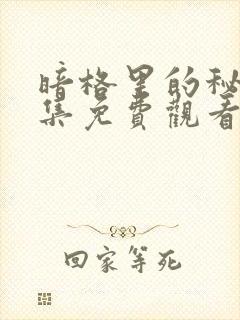 暗格里的秘
集免費觀看
回家等死